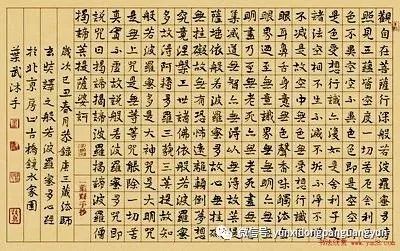 觀自在菩薩行深般若波羅蜜多時
照見五蘊皆空度一切苦厄舍利子
色不異空空不異色色即是空空即
是色受想行識亦復如是舍利子是
諸法空相不生不滅不垢不淨不增
不減是故空中無色無受想行識無
眼耳鼻舌身意無色聲香味觸法無
眼界乃至無意識界無無明亦無無
明盡乃至無老死亦無老死盡無苦
集滅道無智亦無得以無所得故菩
提薩埵依般若波羅蜜多故心無罣
礙無罣礙故無有恐怖遠離顛倒夢想
究竟涅槃三世諸佛依般若波羅蜜
多故得阿耨多羅三藐三菩提故知
般若波羅蜜多是大神咒是大明
咒是無上咒是無等等咒能除一切苦
真實不虛故說般若波羅蜜多咒即
說咒曰揭諦揭諦波羅揭諦波羅僧
揭諦菩提薩婆訶
歲次己丑春月恭錄唐三藏法師
玄奘譯之般若波羅蜜多心經
於北京房山古橋鏡水家園
葉武沐手
微信号: yinxiangpanguangyun
www.yac8.com